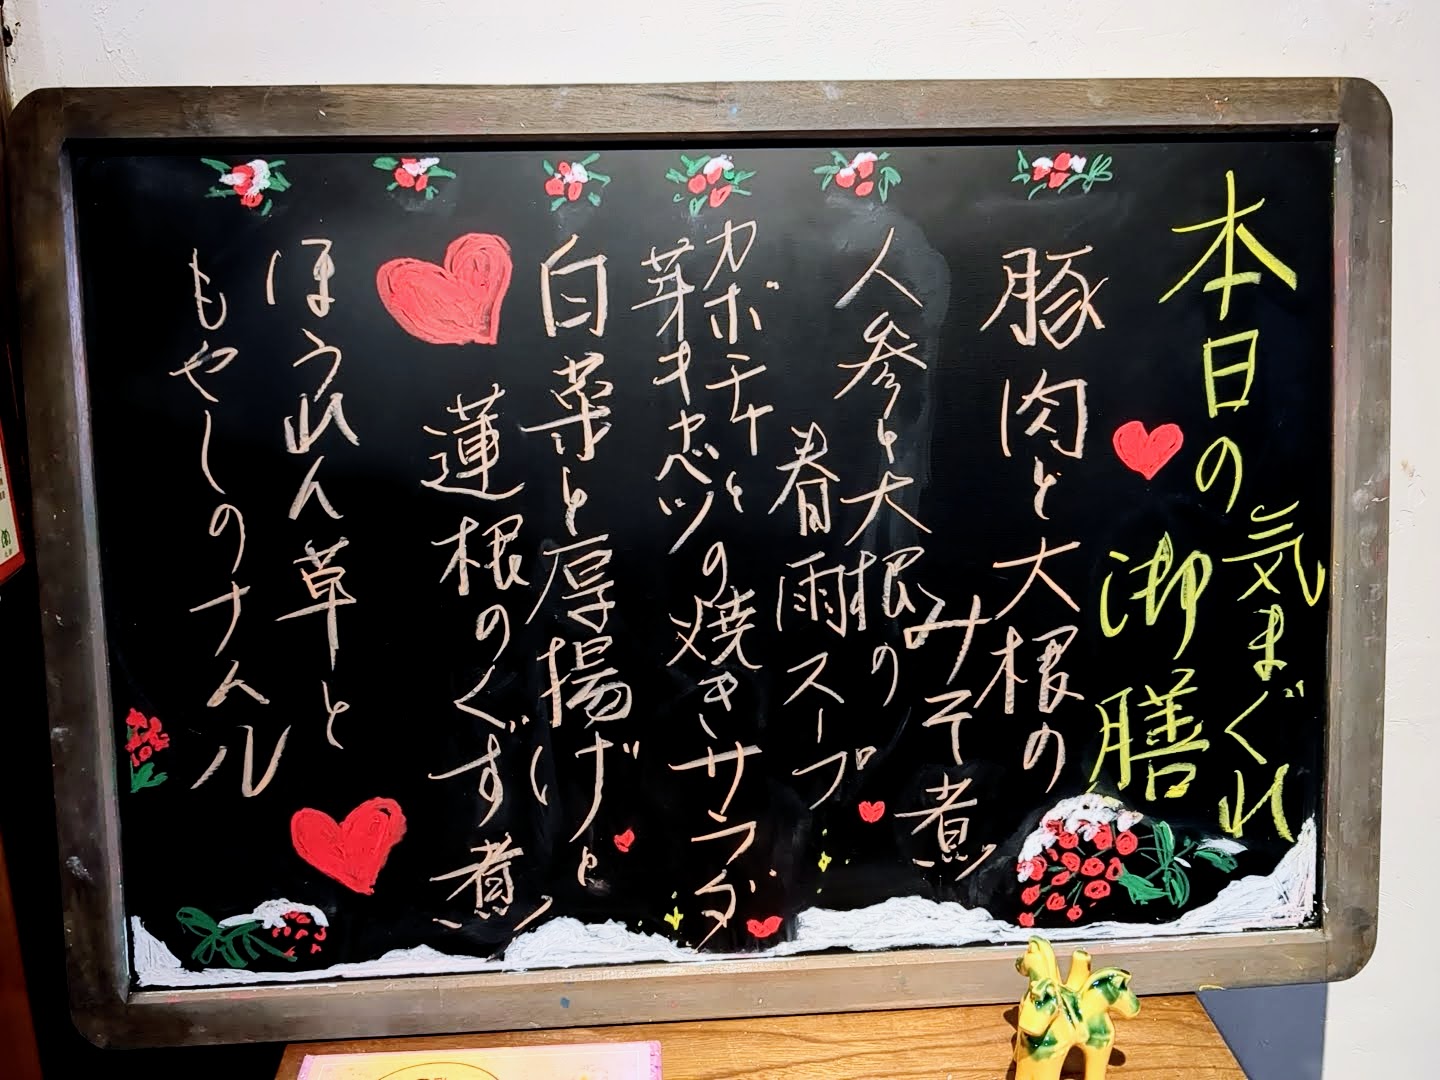 本日の気まぐれ
御膳
豚肉と大根の
みそ煮
人参と大根の
春雨スープ
カボチャと
芽キャベツの焼きサラダ
白菜と厚揚げと
蓮根のくず煮
ほうれん草と
もやしのナムル